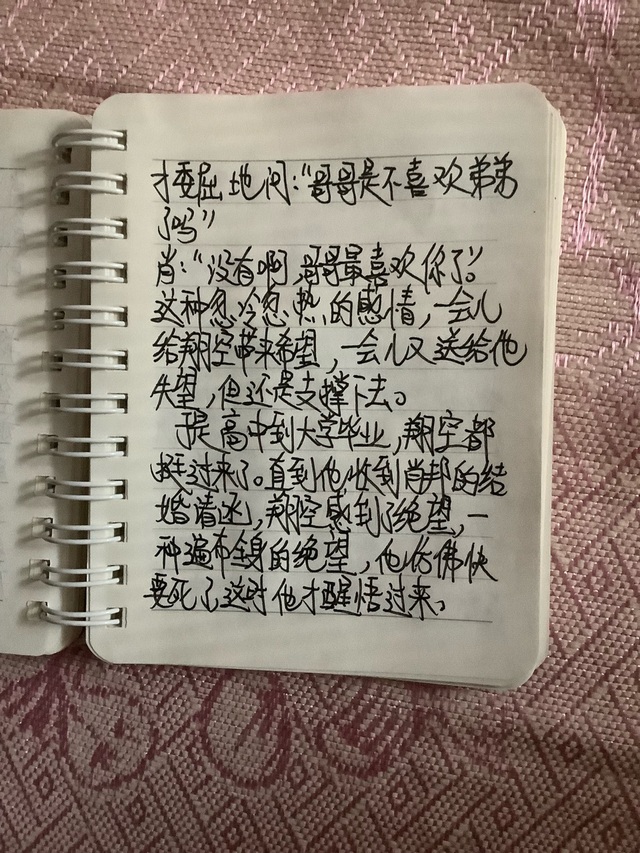 才委屈地问：“哥哥是不喜欢弟弟
了吗”
肖：“没有啊，哥哥最喜欢你了”。
这种忽冷忽热的感情，一会儿
给翔空带来希望，一会儿又送给他
失望，但还是支撑下去。
从高中到大学毕业，翔空都
挺过来了。直到他收到肖邦的结
婚请函，翔空感到了绝望，一
种遍布全身的绝望，他仿佛快
要死了这时他才醒悟过来。